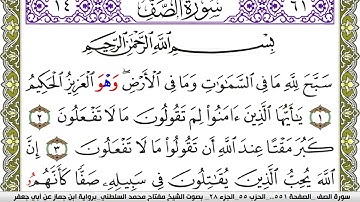 ١٤ سُورَةُ الصَّفِّ ٦١
بِسْمِ اللَّهِ الرَّحْمَٰنِ الرَّحِيمِ
سَبَّحَ لِلَّهِ مَا فِي السَّمَٰوَٰتِ وَمَا فِي الْأَرْضِ ۖ وَهْوَ الْعَزِيزُ الْحَكِيمُ
١ يَٰٓأَيُّهَا الَّذِينَ ءَامَنُواْ لِمَ تَقُولُونَ مَا لَا تَفْعَلُونَ ٢
كَبُرَ مَقْتًا عِندَ اللَّهِ أَن تَقُولُواْ مَا لَا تَفْعَلُونَ ٣ إِنَّ
اللَّهَ يُحِبُّ الَّذِينَ يُقَٰتِلُونَ فِي سَبِيلِهِ صَفًّا كَأَنَّهُمُ
سورة الصف_الصفحة ٥٥١_الجزء ٥٥_الجزء ٢٨_ بصوت الشيخ مفتاح محمد السلطني_برواية ابن جماز عن أبي جعفر